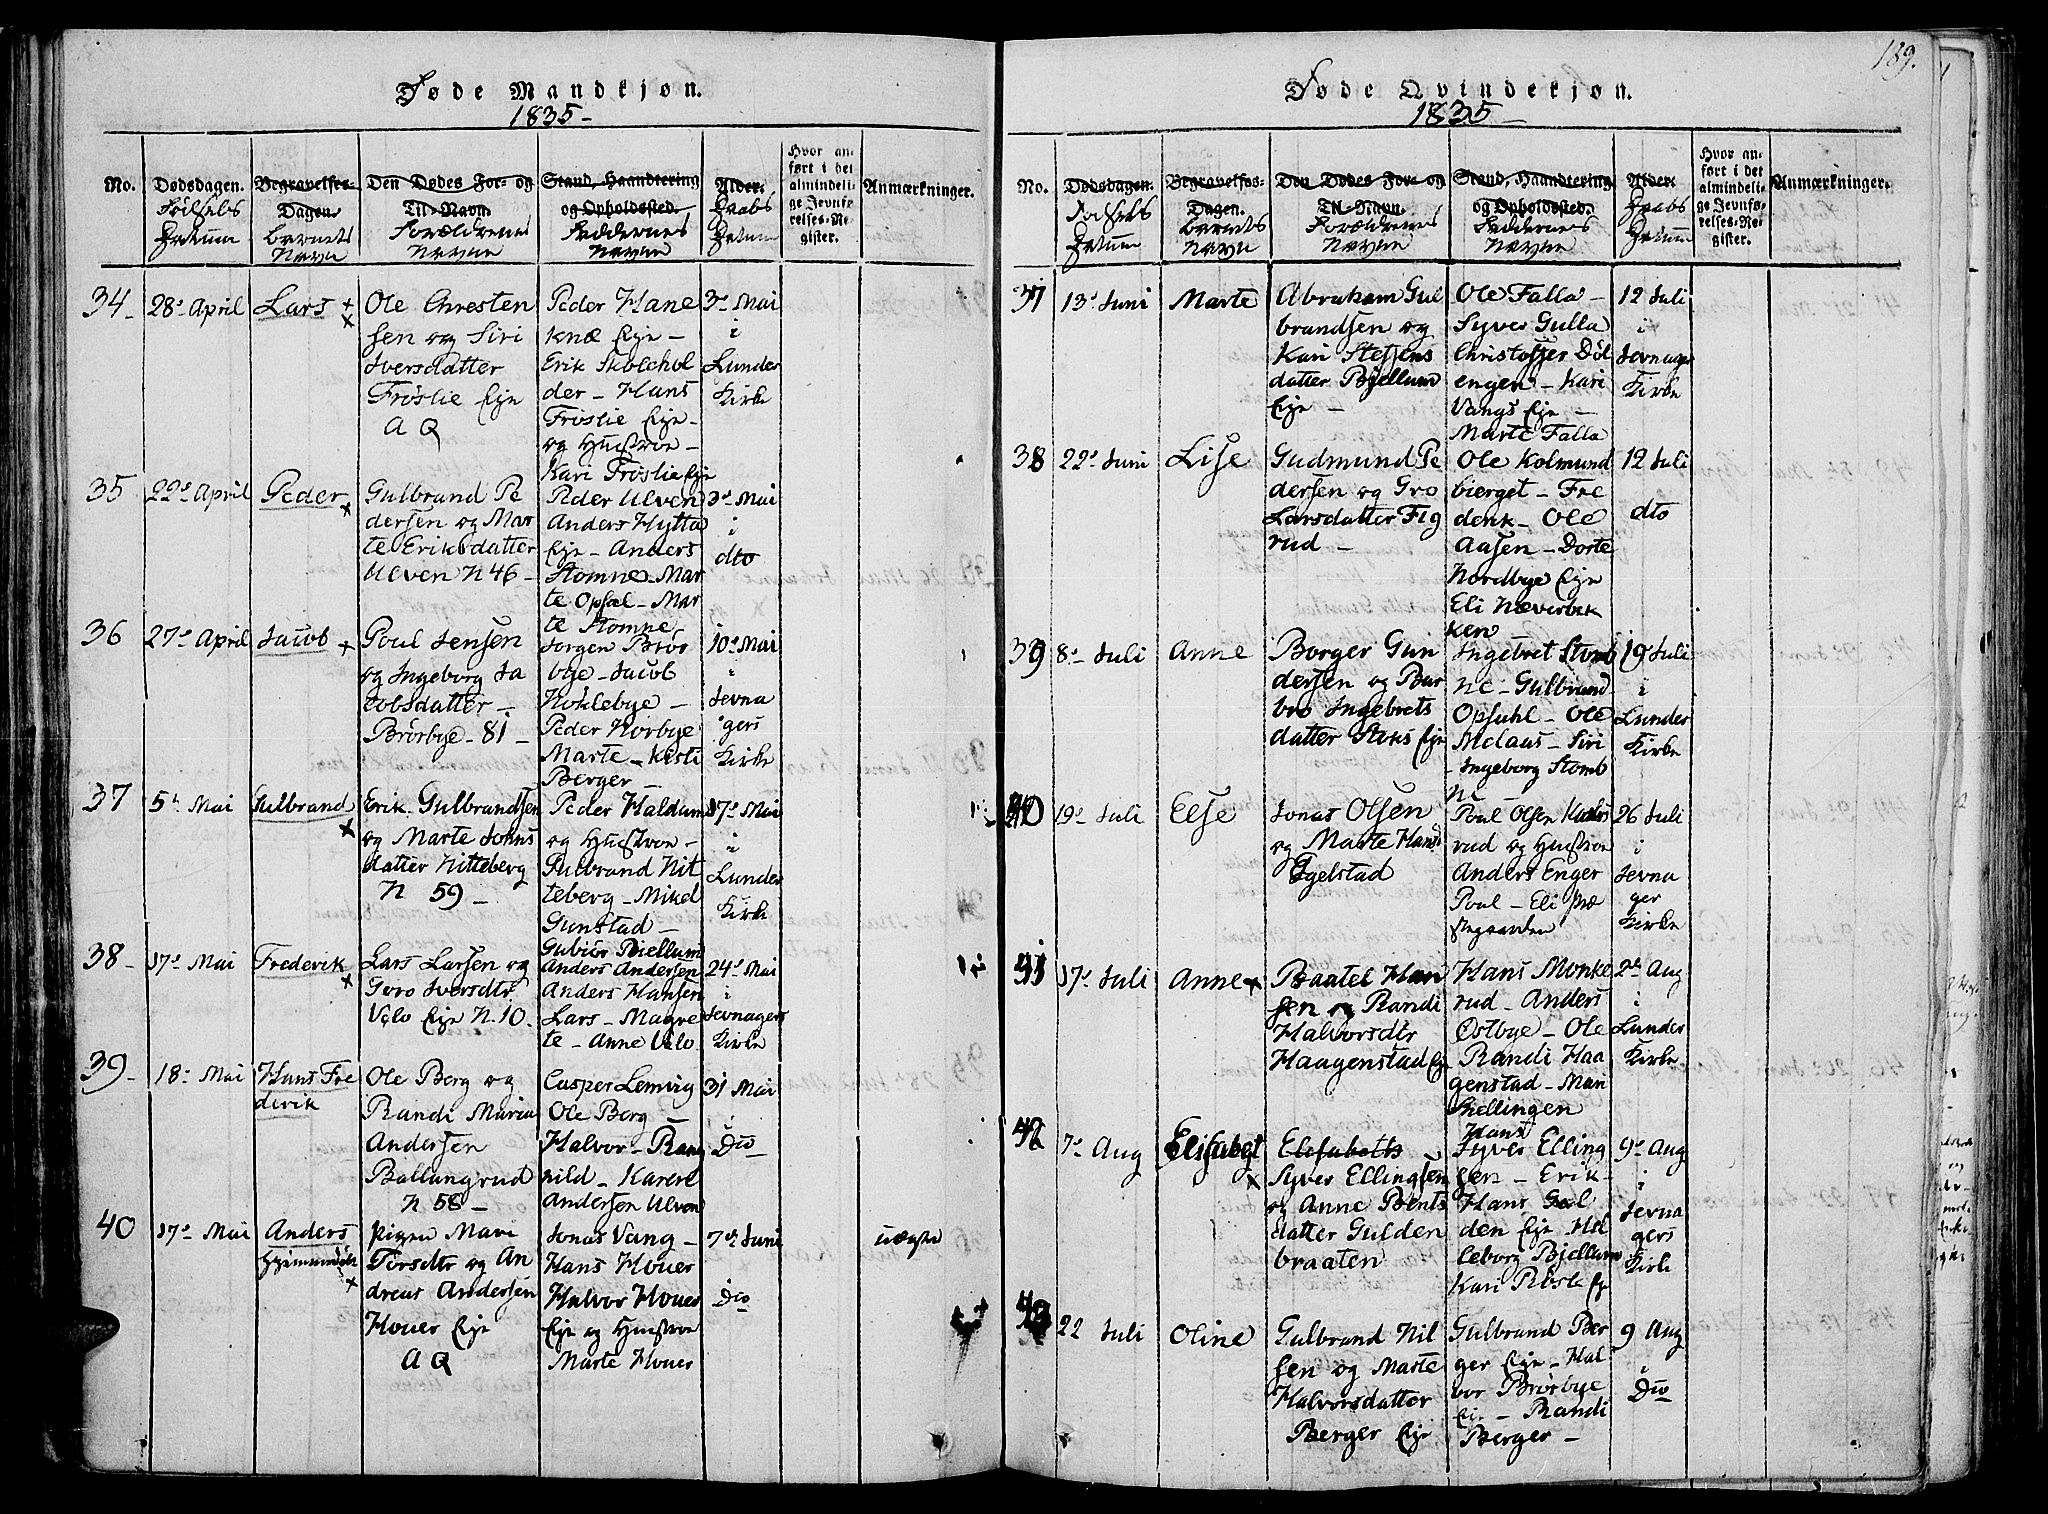 Føde Mandkjøn.
1835-
No.
Dødsdagen.
Fødsels
Datum
Begravelses-
Dagen.
Barnets
Navn
Den Dødes For- og
Til-Navn.
Forældrenes
Navne
Stand, Haandtering
og Opholdssted.
Faddernes
Navne
Alder.
Daabs
Datum
Hvor an-
ført i det
almindeli-
ge Jevnfø-
relses-Re-
gister.
Anmærkninger.
34-
28de April
Lars
Ole Chresten
sen og Siri
Iversdatter
Frøslie Eje
A Q
Peder Hane
knæ Eje -
Erik Skolehol
der - Hans
Frøslie Eje -
og Hustroe -
Kari Frøslie Eje
3de Mai
i
Lunder
Kirke
35
22de April
Peder
Gulbrand Pe
dersen og Mar
te Eriksdatter
Ulven N 46 -
Peder Ulven
Anders Hytta
Eje - Anders
Stomne - Mar
te Opsal - Mar
te Stomne
3de Mai
i
dto
36
27de April
Jacob
Poul Jensen
og Ingeborg Ja
cobsdatter -
Brørbye - 81 -
Jørgen Brør
bye - Jacob
Høklebye -
Peder Norbye
Marte - Kisti
Berger -
10de Mai
i
Jevna
gers
Kirke
37
5te Mai
Gulbrand
Erik Gulbrandsen
og Marte Johns
datter Nitteberg
N 59 -
Peder Haldum
og Hustroe -
Gulbrand Nit
teberg - Mikel
Gunstad -
Gubiør Bjellum
17de Mai
i
Lunder
Kirke
38-
17de Mai
Frederik
Lars Larsen og
Goro Iversdtr
Velo Eje N. 10.
Anders Andersen
Anders Hansen
Lars - Magre
te - Anne Velo
24de Mai
i
Jevnagers
Kirke
39-
18de Mai
Hans Fre
derik
Ole Berg og
Randi Maria
Andersen
Ballangrud
N 58 -
Casper Lemvig
Ole Berg -
Halvor - Rang
nild - Karen
Andersen Ulven
31 Mai
i
Do
40
17de Mai
Anders
Pigen Mari
Torsdtr og An
dreas Andersen
Houer Eje
A Q
Jonas Vang -
Hans Houer
Halvor Houer
Eje og Hustroe
Marte Houer
7de Juni
Do
uægte
189.
Føde Qvindekjøn.
1835-
No.
Dødsdagen.
Fødsels
Datum
Begravelses-
Dagen.
Barnets
Navn
Den Dødes For- og
Til-Navn.
Forældrenes
Navne
Stand, Haandtering
og Opholdssted.
Faddernes
Navne
Alder.
Daabs
Datum
Hvor an-
ført i det
almindeli-
ge Jevnfø-
relses-Re-
gister.
Anmærkninger.
37
13de Juni
Marte
Abraham Gul
brandsen og
Kari Steffens
datter Bjellum
Eje -
Ole Falla -
Syver Gulla
Christoffer Døl
engen - Kari
Vangs Eje -
Marte Falla
12 Juli
i
Jevnager
Kirke
38
22de Juni
Lise
Gudmund Pe
dersen og Gro
Larsdatter Flg
rud -
Ole Kolmund
bierget - Fre
derik - Ole
Aasen - Dorte
Nordbye Eje
Eli Næverbek
ken
12 Juli
dto
39
8de Juli
Anne
Borger Gun
dersen og Bar
bro Ingebrets
datter Stens Eje
Ingebret Stomb
ne - Gulbrand
Opsahl - Ole
Melaas - Siri
Ingeborg Stomb
ne
19de Juli
i
Lunder
Kirke
40
19de Juli
Else
Jonas Olsen
og Marte Hans
Egelstad
Poul Olsen
rud og Hustroe
Anders Enger
Poul - Eli Præ
stegaarden
26 Juli
i
Jevna
ger
Kirke
41
17de Juli
Anne
Baatel Han
sen og Randi
Halvorsdtr
Haagenstad Eje
Hans Monke
rud - Anders
Østbye - Ole
Randi Haa
genstad - Mari
Hellingen
2de Aug
i
Lunder
Kirke
42
7de Aug
Elisabet
Elisabeths
Syver Ellingsen
og Anne Bents
datter Gulden
braaten
Hans
Syver Elling
sen - Erik -
Hans Gul
den Eje - Hel
leborg Bjellum
Kari Røste Eje
9de Aug
i
Jevna
gers
Kirke
43
22 Juli
Oline
Gulbrand Nil
sen og Marte
Halvorsdatter
Berger Eje
Gulbrand Ber
ger Eje - Hal
vor Brørbye
Eje - Randi
Berger -
9 Aug
i
Do